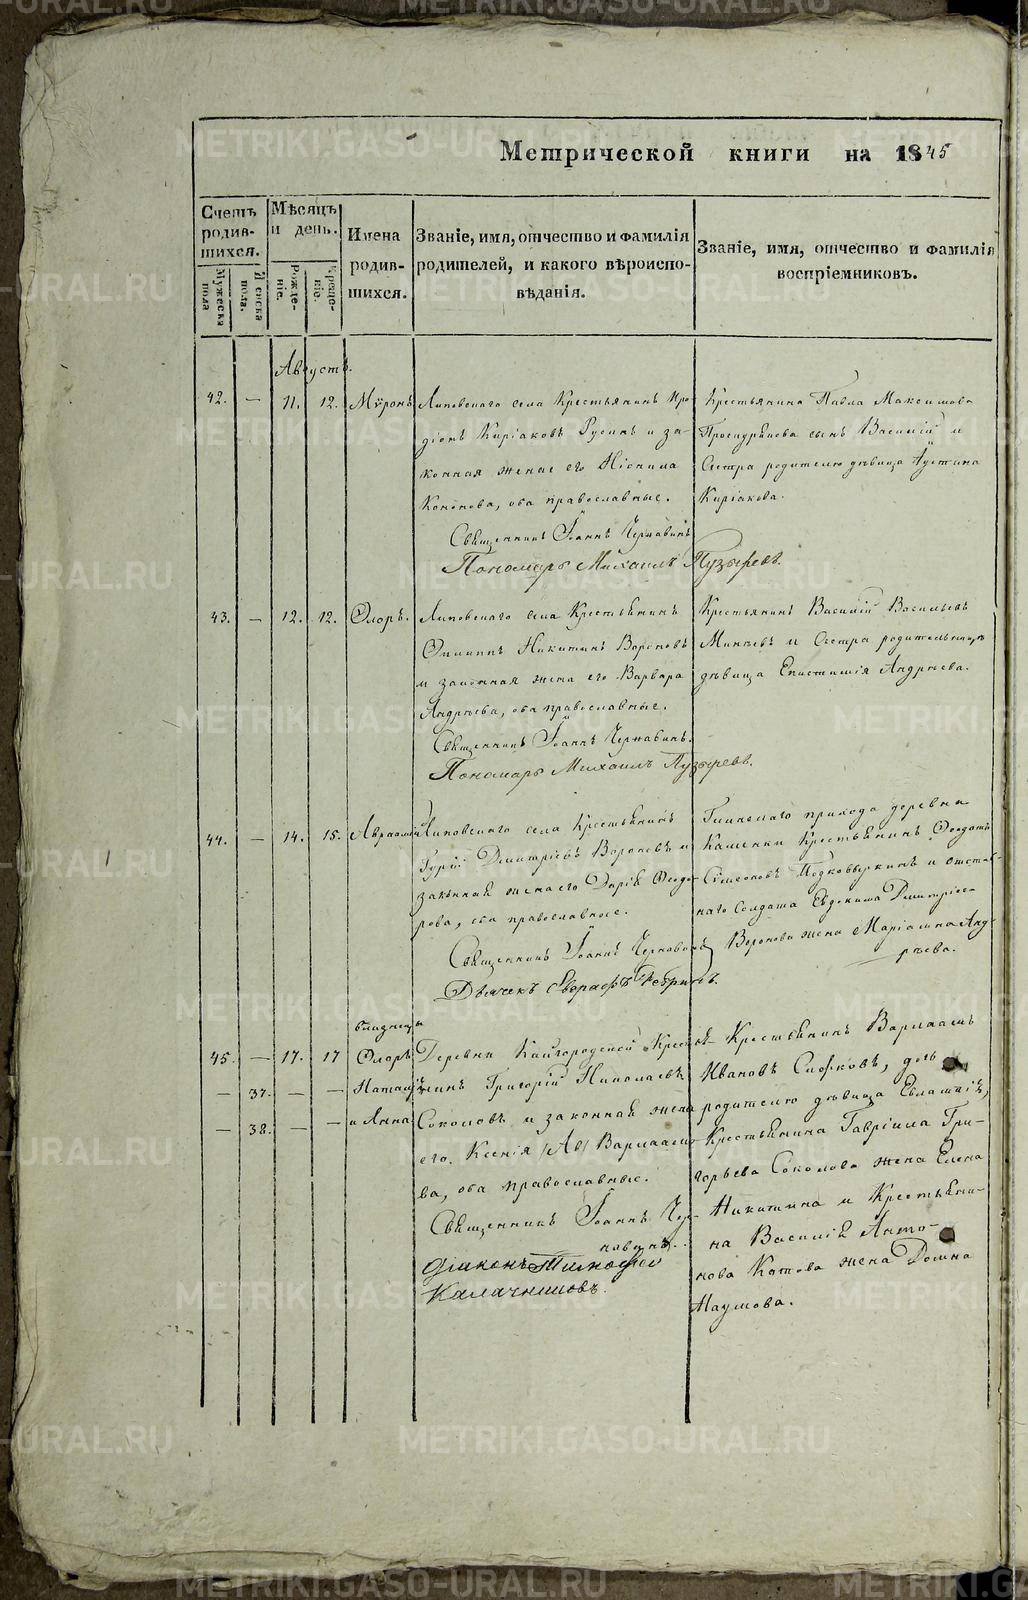 Метрической книги на 1845
Счетъ родившихся.
Мужеска пола
Женска пола.
Мѣсяцъ и день.
Рожденіе.
Крещеніе.
Имена родившихся.
Званіе, имя, отчество и фамилія родителей, и какого вѣроисповѣданія.
Званіе, имя, отчество и фамилія воспріемниковъ.
Августъ.
42. — 11. 12. Мѵронъ
Липовскаго села Крестьянинъ Иро-
діонъ Киріаковъ Русинъ и за-
конная жена его
Кононова, оба православные.
Священникъ Іоаннъ Чернавинъ
Пономарь Михаилъ Пузыревъ.
Крестьянина Павла Максимова
сынъ Василій и
Сестра родителю дѣвица Іустина
Киріакова.
43. — 12. 12. Флоръ.
Липовскаго села Крестьянинъ
Филиппъ Никитинъ Вороновъ
и законная жена его Варвара
Андрѣева, оба православные.
Священникъ Іоаннъ Чернавинъ.
Пономарь Михаилъ Пузыревъ.
Крестьянинъ Василій Васильевъ
Минѣевъ и Сестра родительницѣ
дѣвица Епистимія Андрѣева.
44. — 14. 15. Авраамій
Липовскаго села Крестьянинъ
Гурій Димитріевъ Вороновъ и
законная жена его Дарія Ѳеодо-
рова, оба православные.
Священникъ Іоаннъ Чернавинъ
Дьячекъ
Глинскаго прихода деревни
Каменки Крестьянинъ Ѳеодотъ
Сѵмеоновъ Подковыркинъ и отстав-
наго Солдата Евдокима Димитріева
Воронова жена Маріамна Анд-
рѣева.
близнецы
45. — 17. 17 Флоръ
— 37. — — Наталія
— 38. — — и Анна
Деревни Кайгородской Кресть-
янинъ Григорій Николаевъ
Соколовъ и законная жена
его Ксенія /Ав/ Варлаамо-
ва, оба православные.
Священникъ Іоаннъ Чер-
навинъ.
Діаконъ Тимофей
Калачниковъ.
Крестьянинъ Варлаамъ
Ивановъ Слофковъ, дочь
родителю дѣвица Евлампія,
Крестьянина Гавріила Гри-
горьева Соколова жена Елена
Никитина и Крестьяни-
на Василія Анто-
нова Котова жена Домна
Наумова.